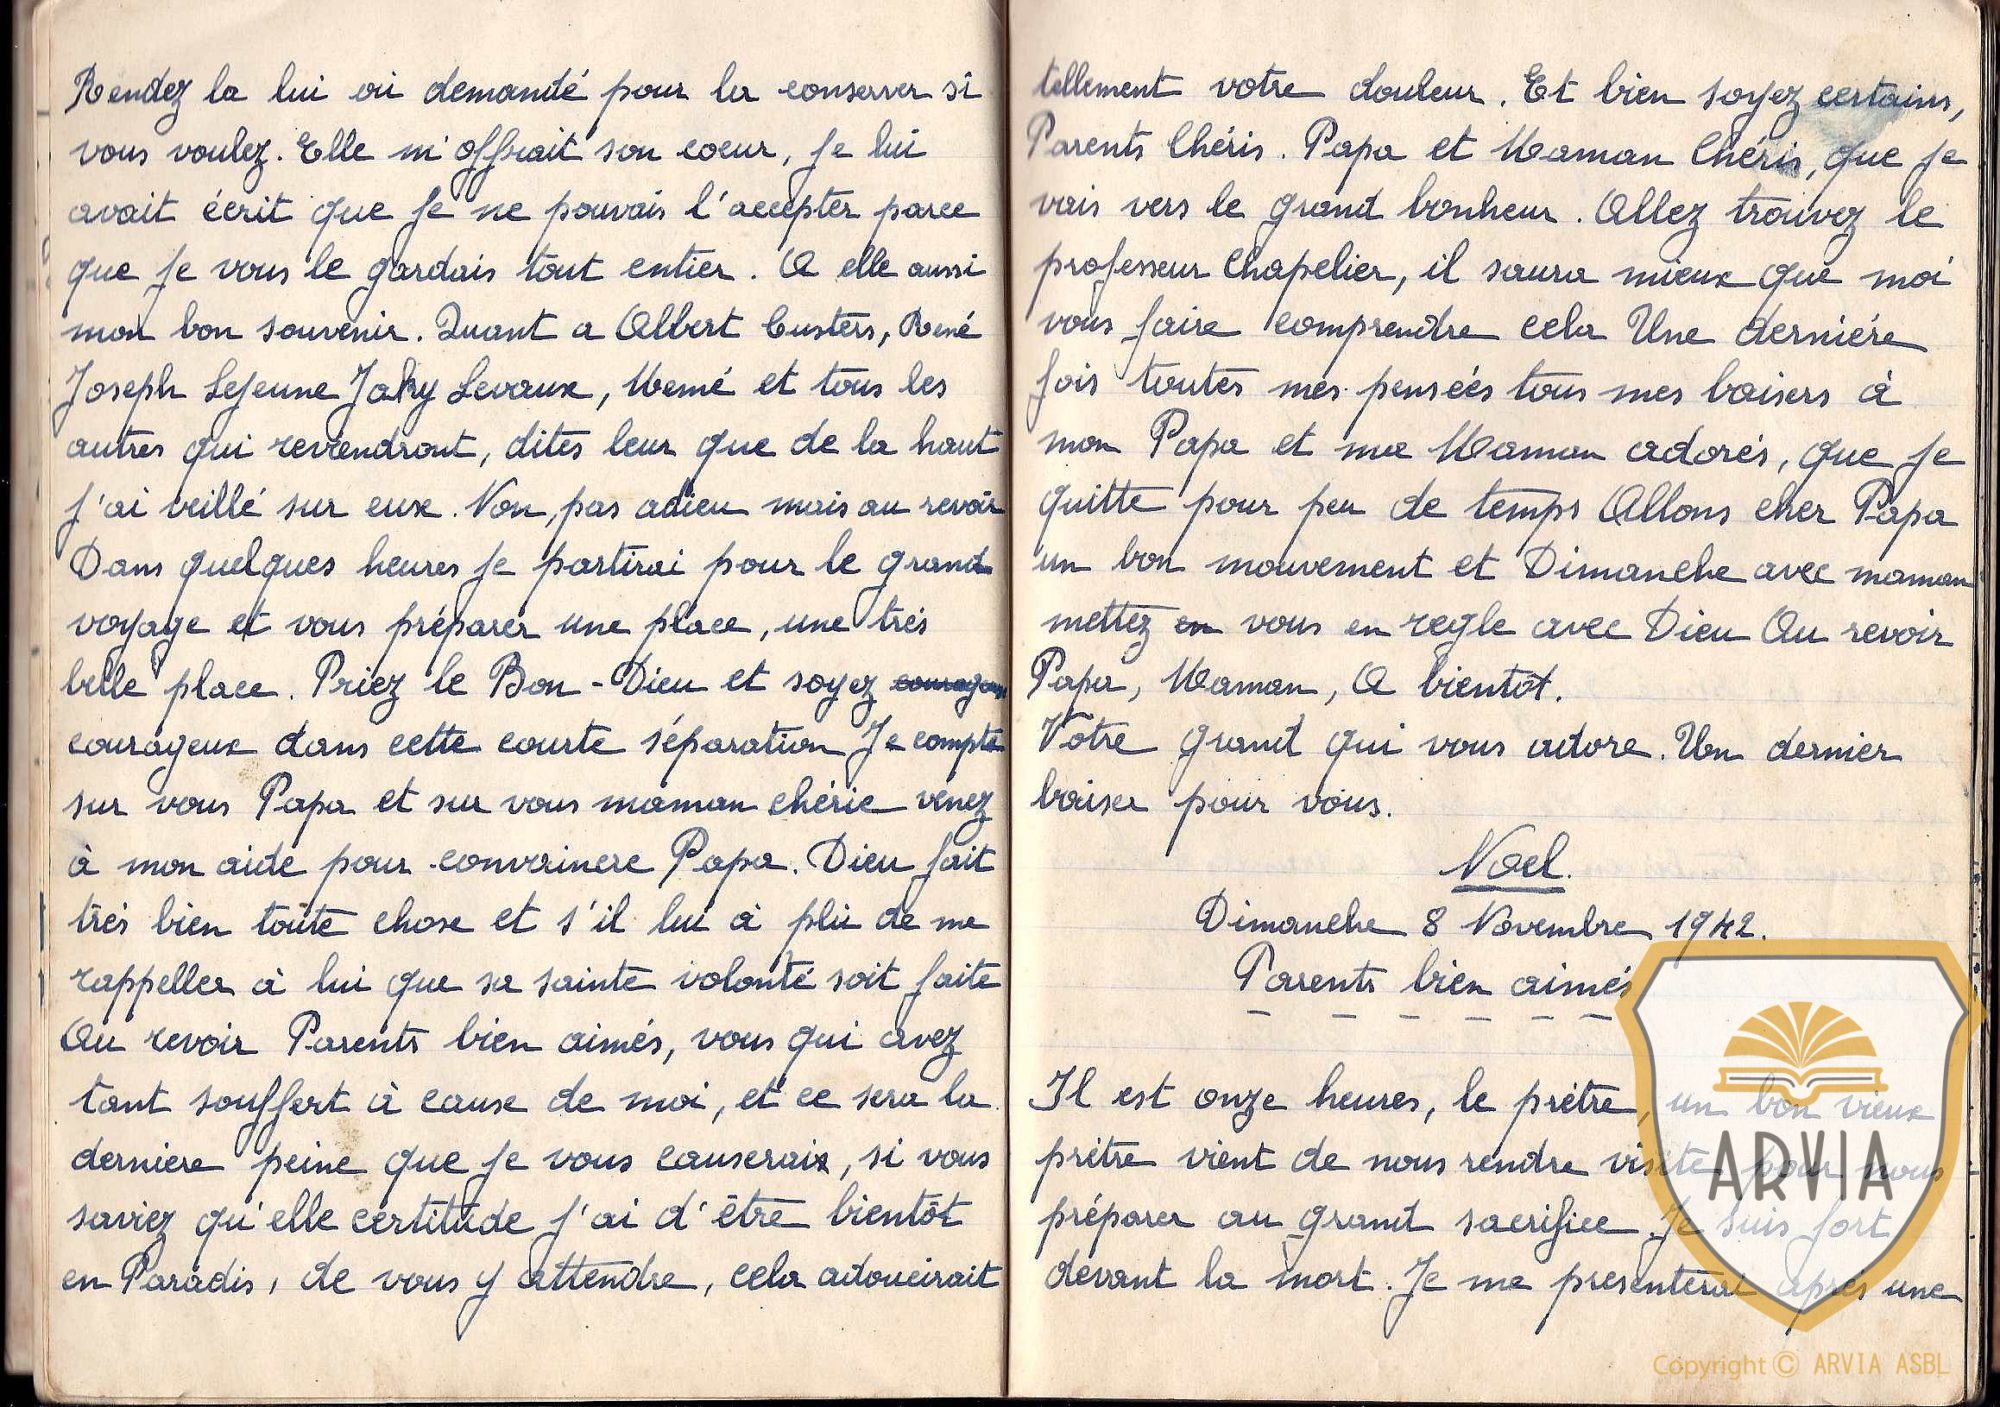 Rendez la lui ou demandé pour la conserver si
vous voulez. Elle m'offrait son coeur, je lui
avait écrit que je ne pouvais l'accepter parce
que je vous le gardais tout entier. A elle aussi
mon bon souvenir. Quant a Albert Custers, René
Joseph Lejeune Jaky Levaux, Memé et tous les
autres qui reviendront, dites leur que de la haut
j'ai veillé sur eux. Non, pas adieu mais au revoir
Dans quelques heures je partirai pour le grand
voyage et vous préparer une place, une trés
belle place. Priez le Bon-Dieu et soyez courageux
courageux dans cette courte séparation Je compte
sur vous Papa et sur vous maman chérie venez
à mon aide pour convaincre Papa. Dieu fait
trés bien toute chose et s'il lui à plu de me
rappeller à lui que sa sainte volonté soit faite
Au revoir Parents bien aimés, vous qui avez
tant souffert à cause de moi, et ce sera la
derniere peine que je vous causerais, si vous
saviez qu'elle certitude j'ai d'être bientôt
en Paradis, de vous y attendre, cela adoucirait
tellement votre douleur. Et bien soyez certains,
Parents Chéris. Papa et Maman Chéris, que je
vais vers le grand bonheur. Allez trouvez le
professeur Chapelier, il saura mieux que moi
vous faire comprendre cela Une derniére
fois toutes mes pensées tous mes baisers à
mon Papa et ma Maman adorés, que je
quitte pour peu de temps Allons cher Papa
un bon mouvement et Dimanche avec maman
mettez en vous en regle avec Dieu Au revoir
Papa, Maman, A bientôt.
Vôtre grand qui vous adore. Un dernier
baiser pour vous.
Noel.
Dimanche 8 Novembre 1942.
Parents bien aimés
Il est onze heures, le prêtre, un bon vieux
prêtre vient de nous rendre visite pour nous
préparer au grand sacrifice Je suis fort
devant la mort. Je me presenterai aprés une
ARVIA
Copyright © ARVIA ASBL